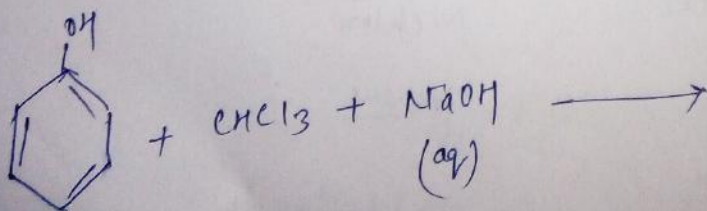 OH
+ CHCl3 + NaOH
(aq)